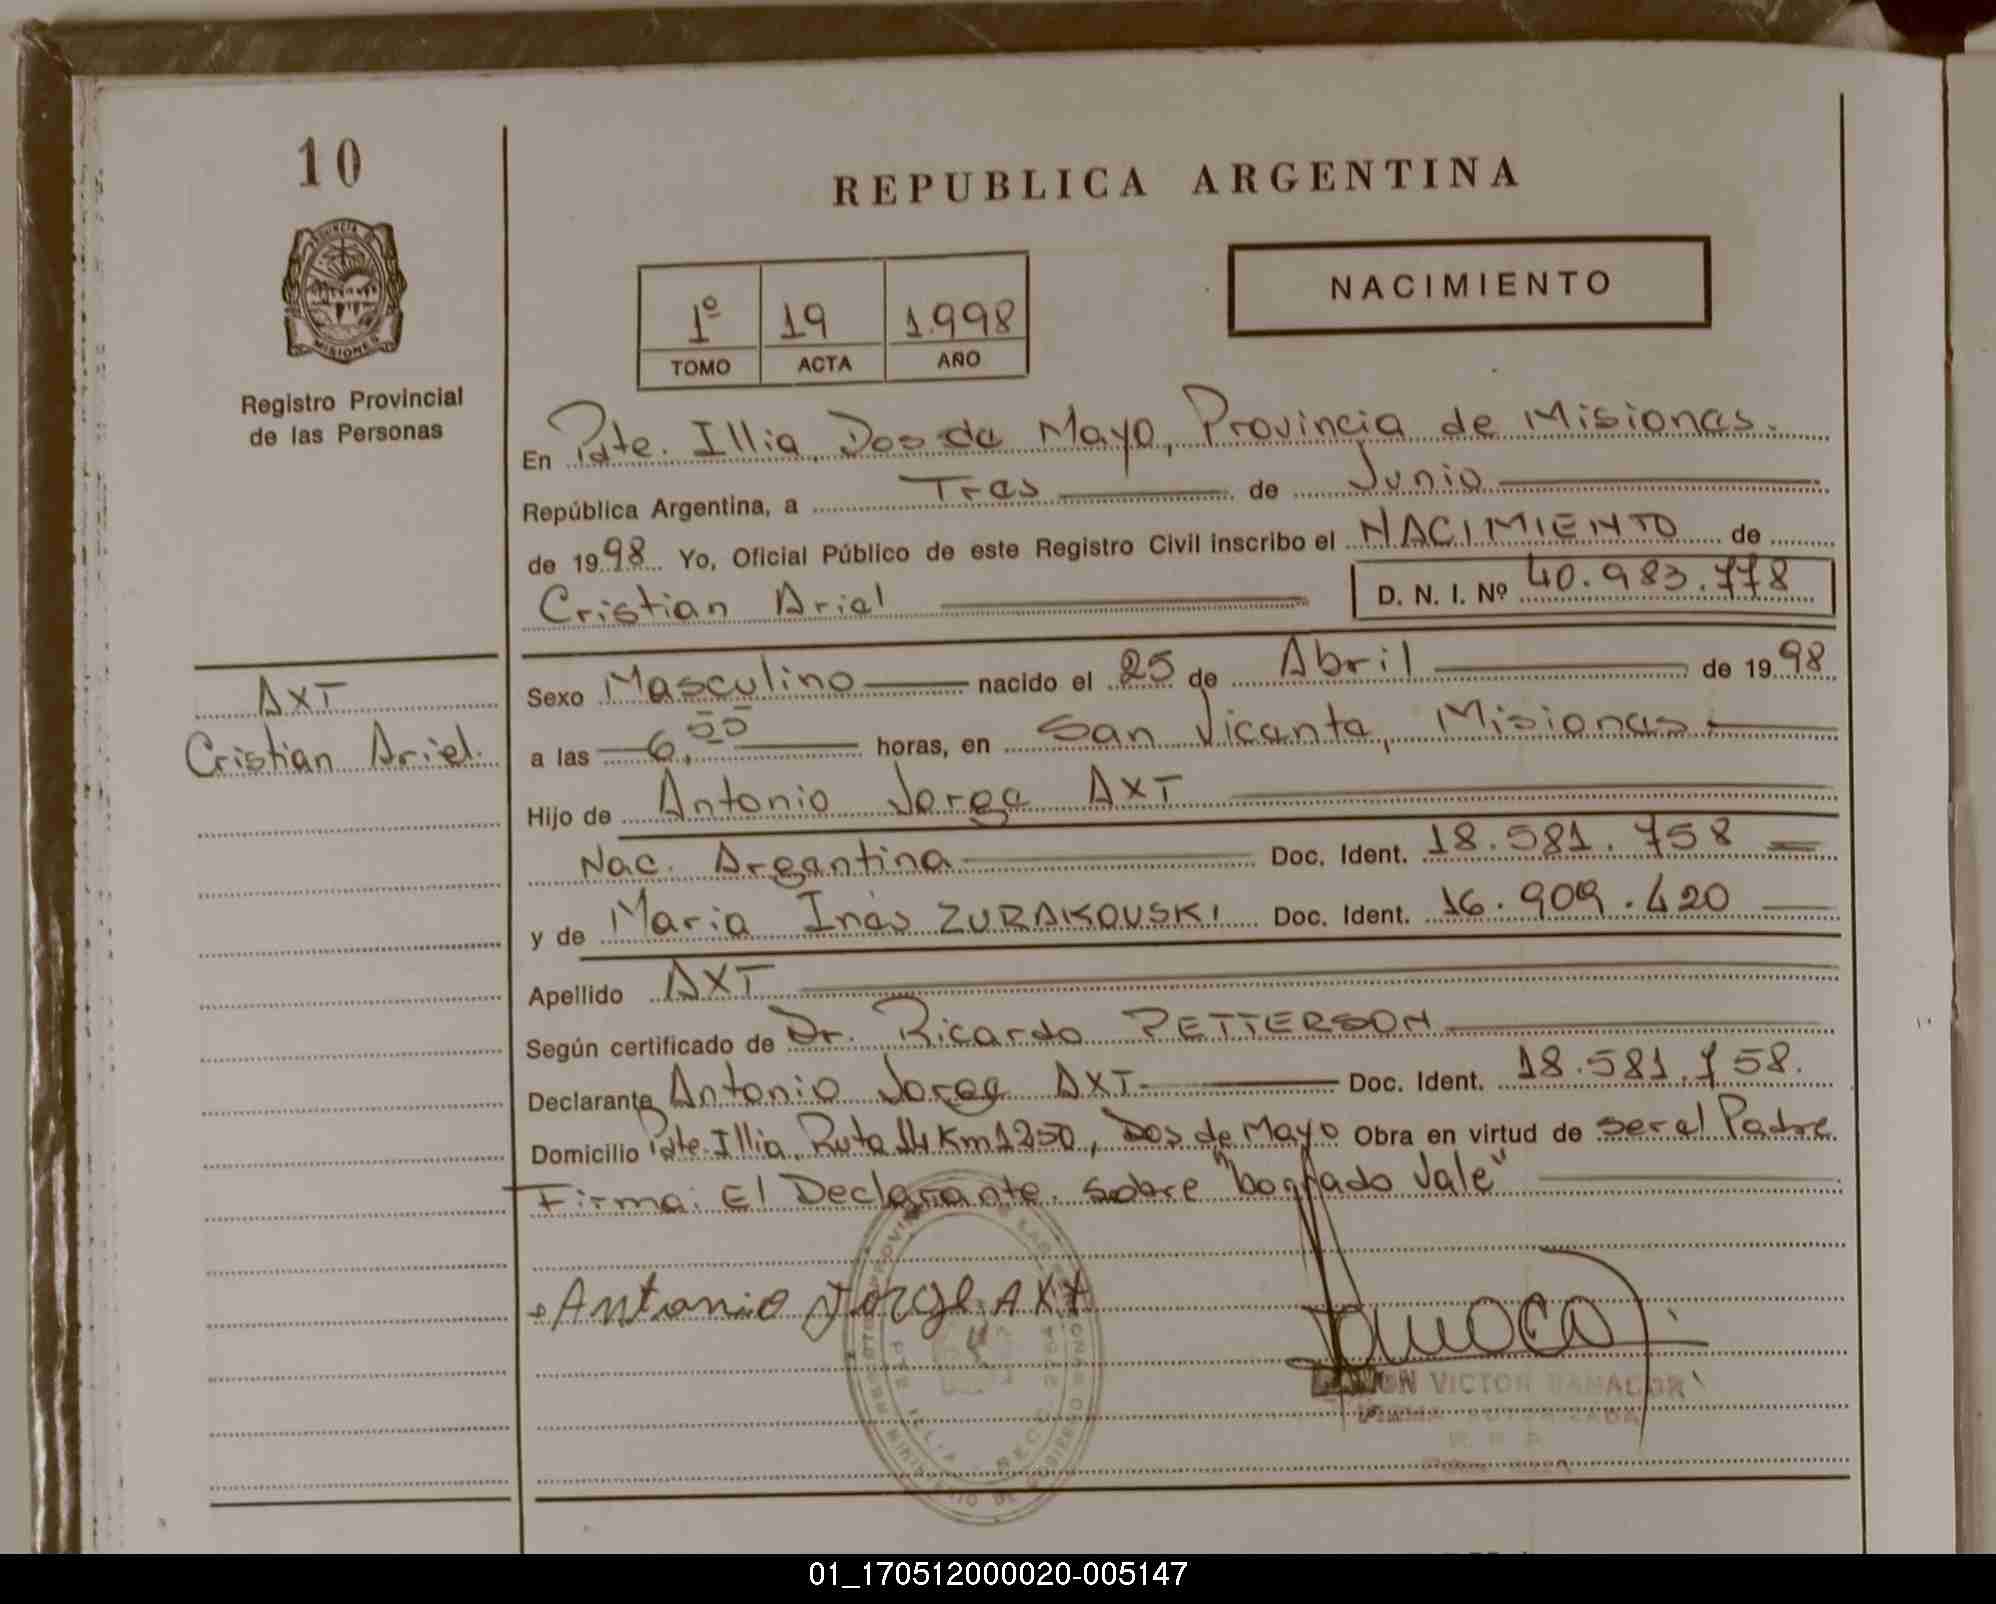 10
REPUBLICA ARGENTINA
PROVINCIA DE
MISIONES
Registro Provincial
de las Personas
NACIMIENTO
1º 19 1.998
TOMO ACTA AÑO
En Pdte. Illia, Dos de Mayo, Provincia de Misiones.
República Argentina, a Tres de Junio
de 1998 Yo, Oficial Público de este Registro Civil inscribo el NACIMIENTO de
Cristian Ariel D. N. I. Nº 40.983.778
AXT
Cristian Ariel.
Sexo Masculino nacido el 25 de Abril de 1998
a las 6,55 horas, en San Vicente, Misiones
Hijo de Antonio Jorge AXT
Nac. Argentina Doc. Ident. 18.581.758
y de Maria Inés ZURAKOUSKI Doc. Ident. 16.909.420
Apellido AXT
Según certificado de Dr. Ricardo PETTERSON
Declarante Antonio Jorge AXT Doc. Ident. 18.581.758.
Domicilio Pdte. Illia, Ruta 14 Km 1250, Dos de Mayo Obra en virtud de ser el Padre
Firma: El Declarante. Sobre "borrado Vale"
Antonio Jorge AXT
VICTOR
01_170512000020-005147